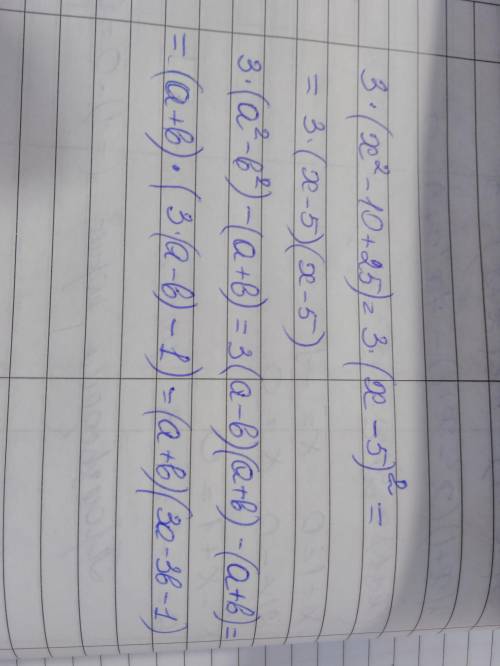 3·(x²-10+25)=3·(x-5)²=
=3·(x-5)(x-5)
3·(a²-b²)-(a+b)=3(a-b)(a+b)-(a+b)=
=(a+b)·(3·(a-b)-1)=(a+b)(3a-3b-1)